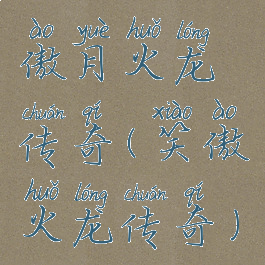 ào yuè huǒ lóng
傲月火龙
chuán qí xiào ào
传奇(笑傲
huǒ lóng chuán qí
火龙传奇)